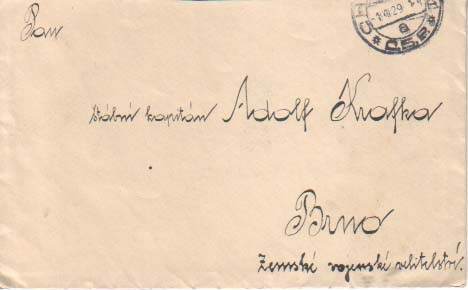 Pan
štábní kapitán Adolf Krafka
Brno
Zemské vojenské velitelství.